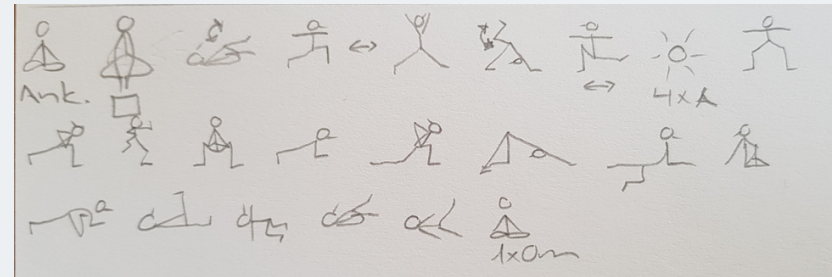 Ank.
4xA
1xOm